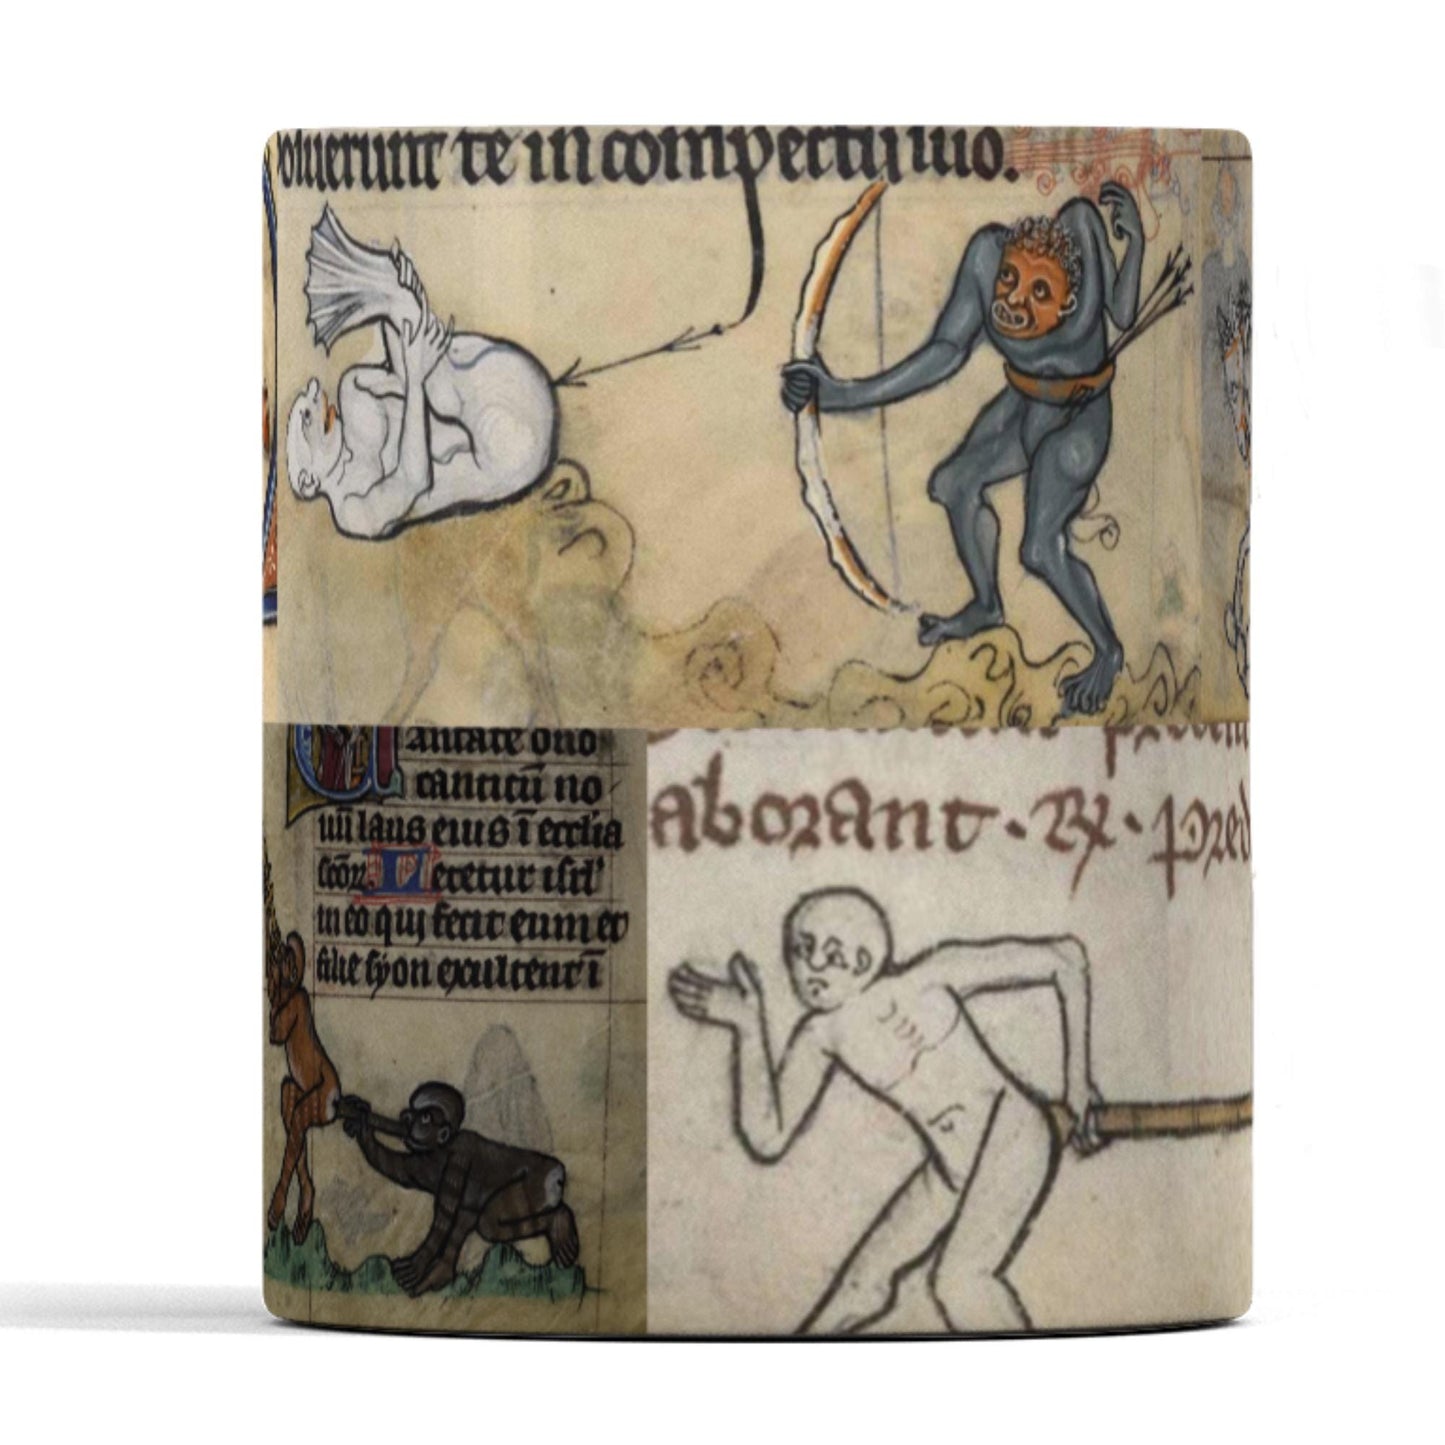 ouerunt te in compectu iuo.
antate dno
canticū no
uū laus eius ī ecclia
scōꝝ Letetur isrl'
in eo qui fecit eum et
filie syon exultent ī
aborant · Rx · pred